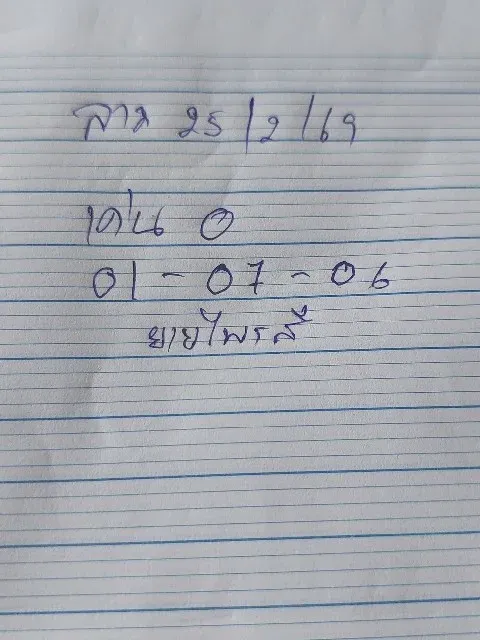 ลาว 25/2/69
เด่น 0
01-07-06
ยายไพรสี